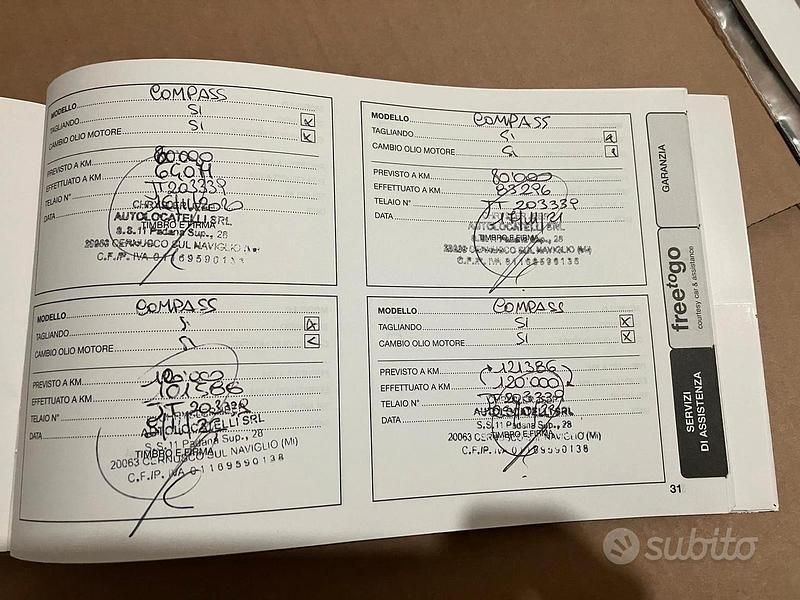 MODELLO COMPASS
TAGLIANDO SI X
CAMBIO OLIO MOTORE SI X
PREVISTO A KM 80.000
EFFETTUATO A KM 64011
TELAIO N° JT203339
DATA
AUTOLOCATELLI SRL
TIMBRO E FIRMA
S.S.11 Padana Sup., 28
20063 CERNUSCO SUL NAVIGLIO
C.F./P. IVA 01169590138
MODELLO COMPASS
TAGLIANDO SI
CAMBIO OLIO MOTORE SI
PREVISTO A KM 80'000
EFFETTUATO A KM 83296
TELAIO N° JT203339
DATA
AUTOLOCATELLI SRL
TIMBRO E FIRMA
S.S.11 Padana Sup., 28
20063 CERNUSCO SUL NAVIGLIO (MI)
C.F./P. IVA 01169590138
MODELLO COMPASS
TAGLIANDO
CAMBIO OLIO MOTORE
PREVISTO A KM 120.000
EFFETTUATO A KM 101386
TELAIO N° JT203339
DATA
TIMBRO E FIRMA
S.S.11 Padana Sup., 28
20063 CERNUSCO SUL NAVIGLIO (MI)
C.F./P. IVA 01169590138
MODELLO COMPASS
TAGLIANDO SI X
CAMBIO OLIO MOTORE SI X
PREVISTO A KM 121386
EFFETTUATO A KM 120'000
TELAIO N° JT203339
DATA
AUTOLOCATELLI SRL
S.S.11 Padana Sup., 28
TIMBRO E FIRMA
20063 CERNUSCO SUL NAVIGLIO (MI)
C.F./P. IVA 01169590138
31
GARANZIA
freetogo
courtesy car & assistance
SERVIZI
DI ASSISTENZA
subito